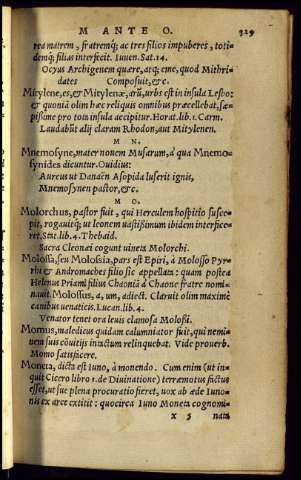 M ANTE O. 329
rea matrem, fratremq́; ac tres filios impuberes, toti-
demq́; filias interfecit. Iuuen. Sat. 14.
Ocyus Archigenem quære, atq́; eme, quod Mithri-
dates Composuit, &c.
Mitylene, es, & Mitylenæ, arũ, urbs est in insula Lesbo:
& quoniã olim hæc reliquis omnibus præcellebat, sæ-
pissime pro tota insula accipitur. Horat. lib. 1. Carm.
Laudabũt alij claram Rhodon, aut Mitylenen.
M N.
Mnemosyne, mater nouem Musarum, à qua Mnemo-
synides dicuntur. Ouidius:
Aureus ut Danaën Asopida luserit ignis,
Mnemosynen pastor, &c.
M O.
Molorchus, pastor fuit, qui Herculem hospitio susce-
pit, rogauitq́; ut leonem uastissimum ibidem interfice-
ret. Stat. lib. 4. Thebaid.
Sacra Cleonæi cogunt uineta Molorchi.
Molossa, seu Molossia, pars est Epiri, à Molosso Pyr-
rhi & Andromaches filio sic appellata: quam postea
Helenus Priami filius Chaoniã à Chaone fratre nomi-
nauit. Molossus, a, um, adiect. Claruit olim maximè
canibus uenaticis. Lucan. lib. 4.
Venator tenet ora leuis clamosa Molossi.
Momus, maledicus quidam calumniator fuit, qui nemi-
nem suis cõuitijs intactum relinquebat. Vide prouerb.
Momo satisfacere.
Moneta, dicta est Iuno, à monendo. Cum enim (ut in-
quit Cicero libro 1. de Diuinatione) terræmotus factus
esset, ut sue plena procuratio fieret, uox ab æde Iuno-
nis ex arce extitit: quocirca Iuno Moneta cognomi-
x 5 nata